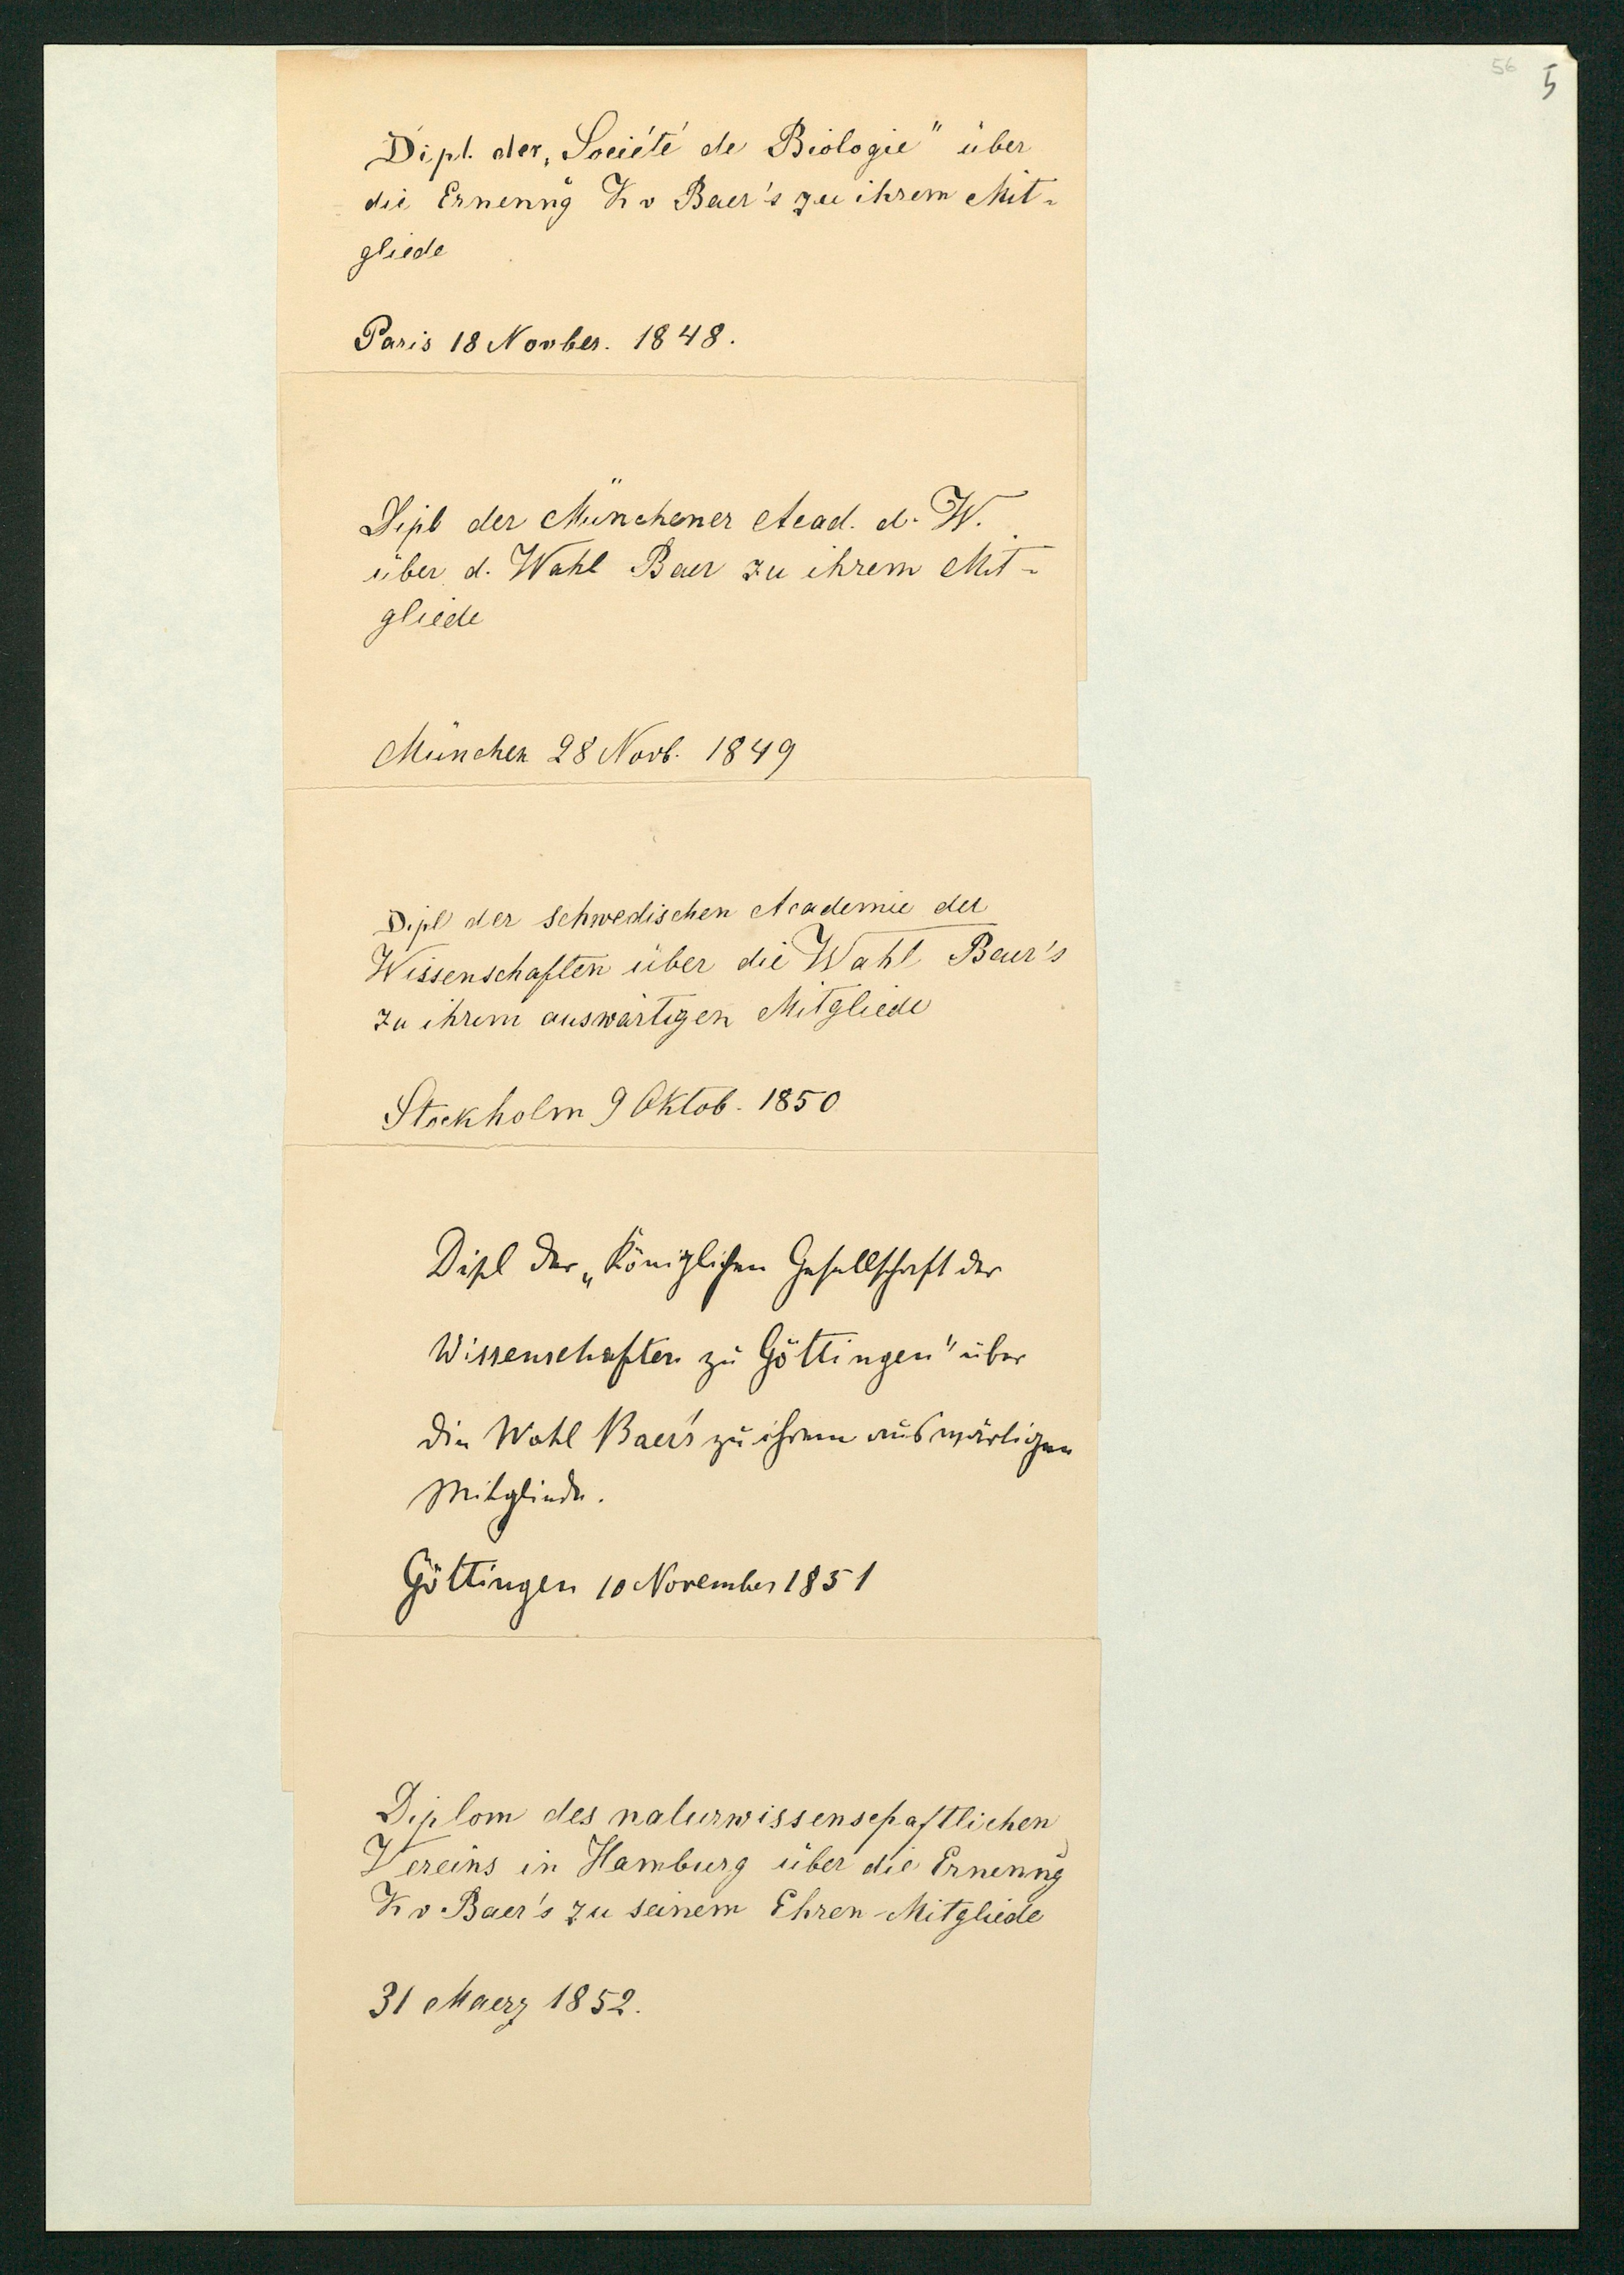 56 5
Dipl. der „Société de Biologie" über
die Ernenng̅ K v Baer's zu ihrem Mit-
gliede
Paris 18 Novber. 1848.
Dipl der Münchener Acad. d. W.
über d. Wahl Baer zu ihrem Mit-
gliede
München 28 Novb. 1849
Dipl der schwedischen Academie der
Wissenschaften über die Wahl Baer's
zu ihrem auswärtigen Mitgliede
Stockholm 9 Oktob. 1850
Dipl der „Königlichen Gesellschaft der
Wissenschaften zu Göttingen" über
die Wahl Baer's zu ihrem auswärtigen
Mitgliede.
Göttingen 10 November 1851
Diplom des naturwissenschaftlichen
Vereins in Hamburg über die Ernenng̅
K v. Baer's zu seinem Ehren-Mitgliede
31 Maerz 1852.